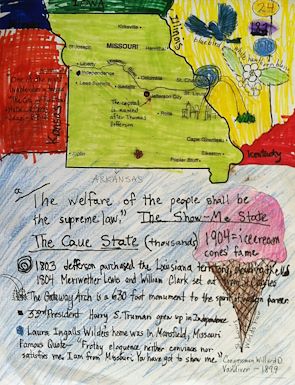 Iowa
24
Illinois
bluebird
Kirksville
St. Joseph
MISSOURI
Hannibal
Liberty
Independence
Columbia
Lees Summit
Sedalia
Jefferson City
The capital
is named
after Thomas
Jefferson
Rolla
Cape Girardeau
Springfield
Joplin
Poplar Bluff
Kentucky
ARKANSAS
"The welfare of the people shall be
the supreme law." The Show-Me State
The Cave State (thousands) 1904=icecream
cones fame
1803 Jefferson purchased the Louisiana territory, doubling the US
1804 Meriwether Lewis and William Clark set out from St. Charles
The Gateway Arch is a 630 foot monument to the spirit of western pioneers
33rd President Harry S. Truman grew up in Independence
Laura Ingalls Wilder's home was in Mansfield, Missouri
Famous Quote - "Frothy eloquence neither convinces nor
satisfies me. I am from Missouri. You have got to show me."
Congressman Willard D.
Vandiver - 1899